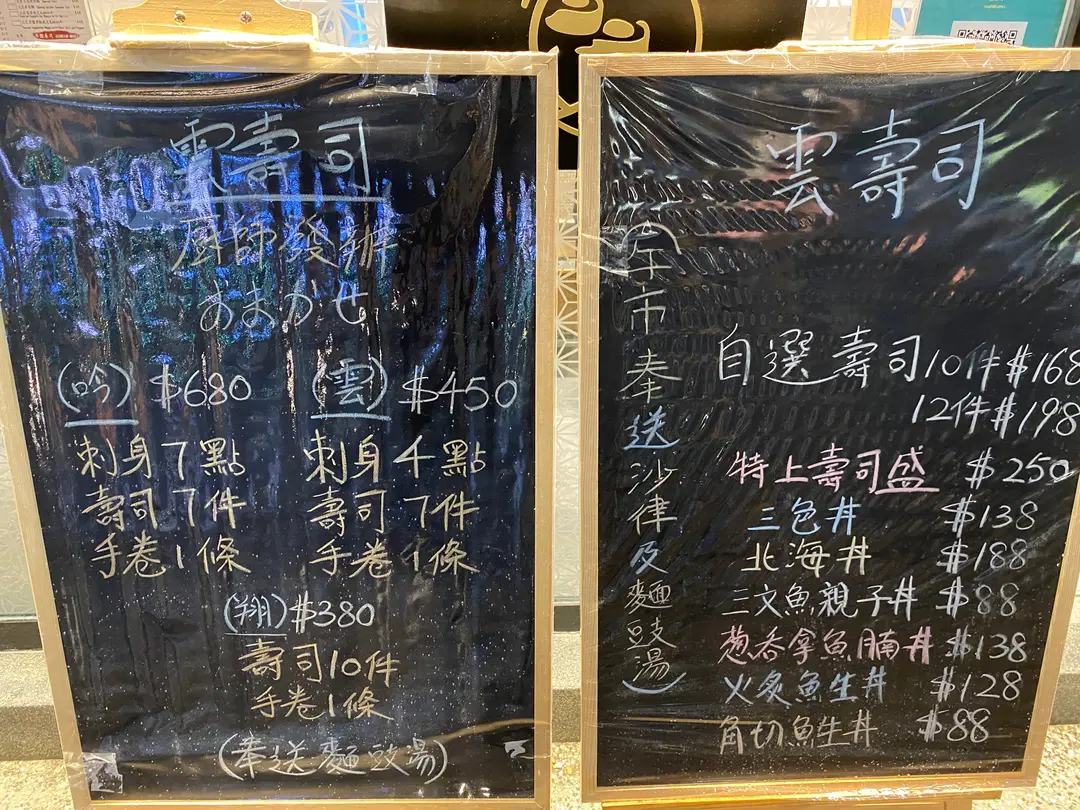 雲壽司
厨師發辦
おまかせ
(吟) $680
刺身7點
壽司7件
手卷1條
(雲) $450
刺身4點
壽司7件
手卷1條
(翔) $380
壽司10件
手卷1條
(奉送麵豉湯)
雲壽司
(午市奉送沙律及麵豉湯)
自選壽司10件$168
12件$198
特上壽司盛 $250
三色丼 $138
北海丼 $188
三文魚親子丼 $88
葱吞拿魚腩丼 $138
火炙魚生丼 $128
角切魚生丼 $88